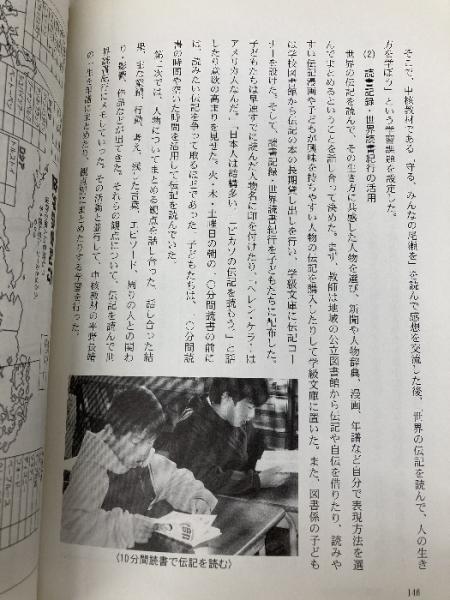 そこで、中核教材である「守る、みんなの尾瀬を」を読んで感想を交流した後、世界の伝記を読んで、人の生き
方を学ぼう」という学習課題を設定した。
(2) 読書記録・世界読書紀行の活用
世界の伝記を読んで、その生き方に共感した人物を選び、新聞や人物辞典、漫画、年譜など自分で表現方法を選
んでまとめるということを話し合って決めた。まず、教師は地域の公立図書館から伝記や自伝を借りたり、読みや
すい伝記漫画や子どもが興味を持ちやすい人物の伝記を購入したりして学級文庫に置いた。また、図書係の子ども
は学校図書館から伝記の本の長期貸し出しを行い、学級文庫に伝記コー
ナーを設けた。そして、読書記録・世界読書紀行を子どもたちに配布した。
子どもたちは早速すでに読んだ人物名に印を付けたり、「ヘレン・ケラーは
アメリカ人なんだ。」「日本人は結構多い。」「ピカソの伝記を読もう。」と話
したり意欲の高まりを見せた。火・木・土曜日の朝の一〇分間読書の前に
は、読みたい伝記を争って取るほどであった。子どもたちは、一〇分間読
書の時間や空いた時間を活用して伝記を読んでいた。
第二次では、人物についてまとめる観点を話し合った。話し合った結
果、主な業績、行動、考え、残した言葉、エピソード、周りの人との関わ
り・影響、作品などが出てきた。それらの観点について、伝記を読んで世
界読書紀行にメモしていった。その活動と並行して、中核教材の平野長靖
の一生を年譜にまとめたり、観点別にまとめたりする学習を行った。
〈10分間読書で伝記を読む〉
148